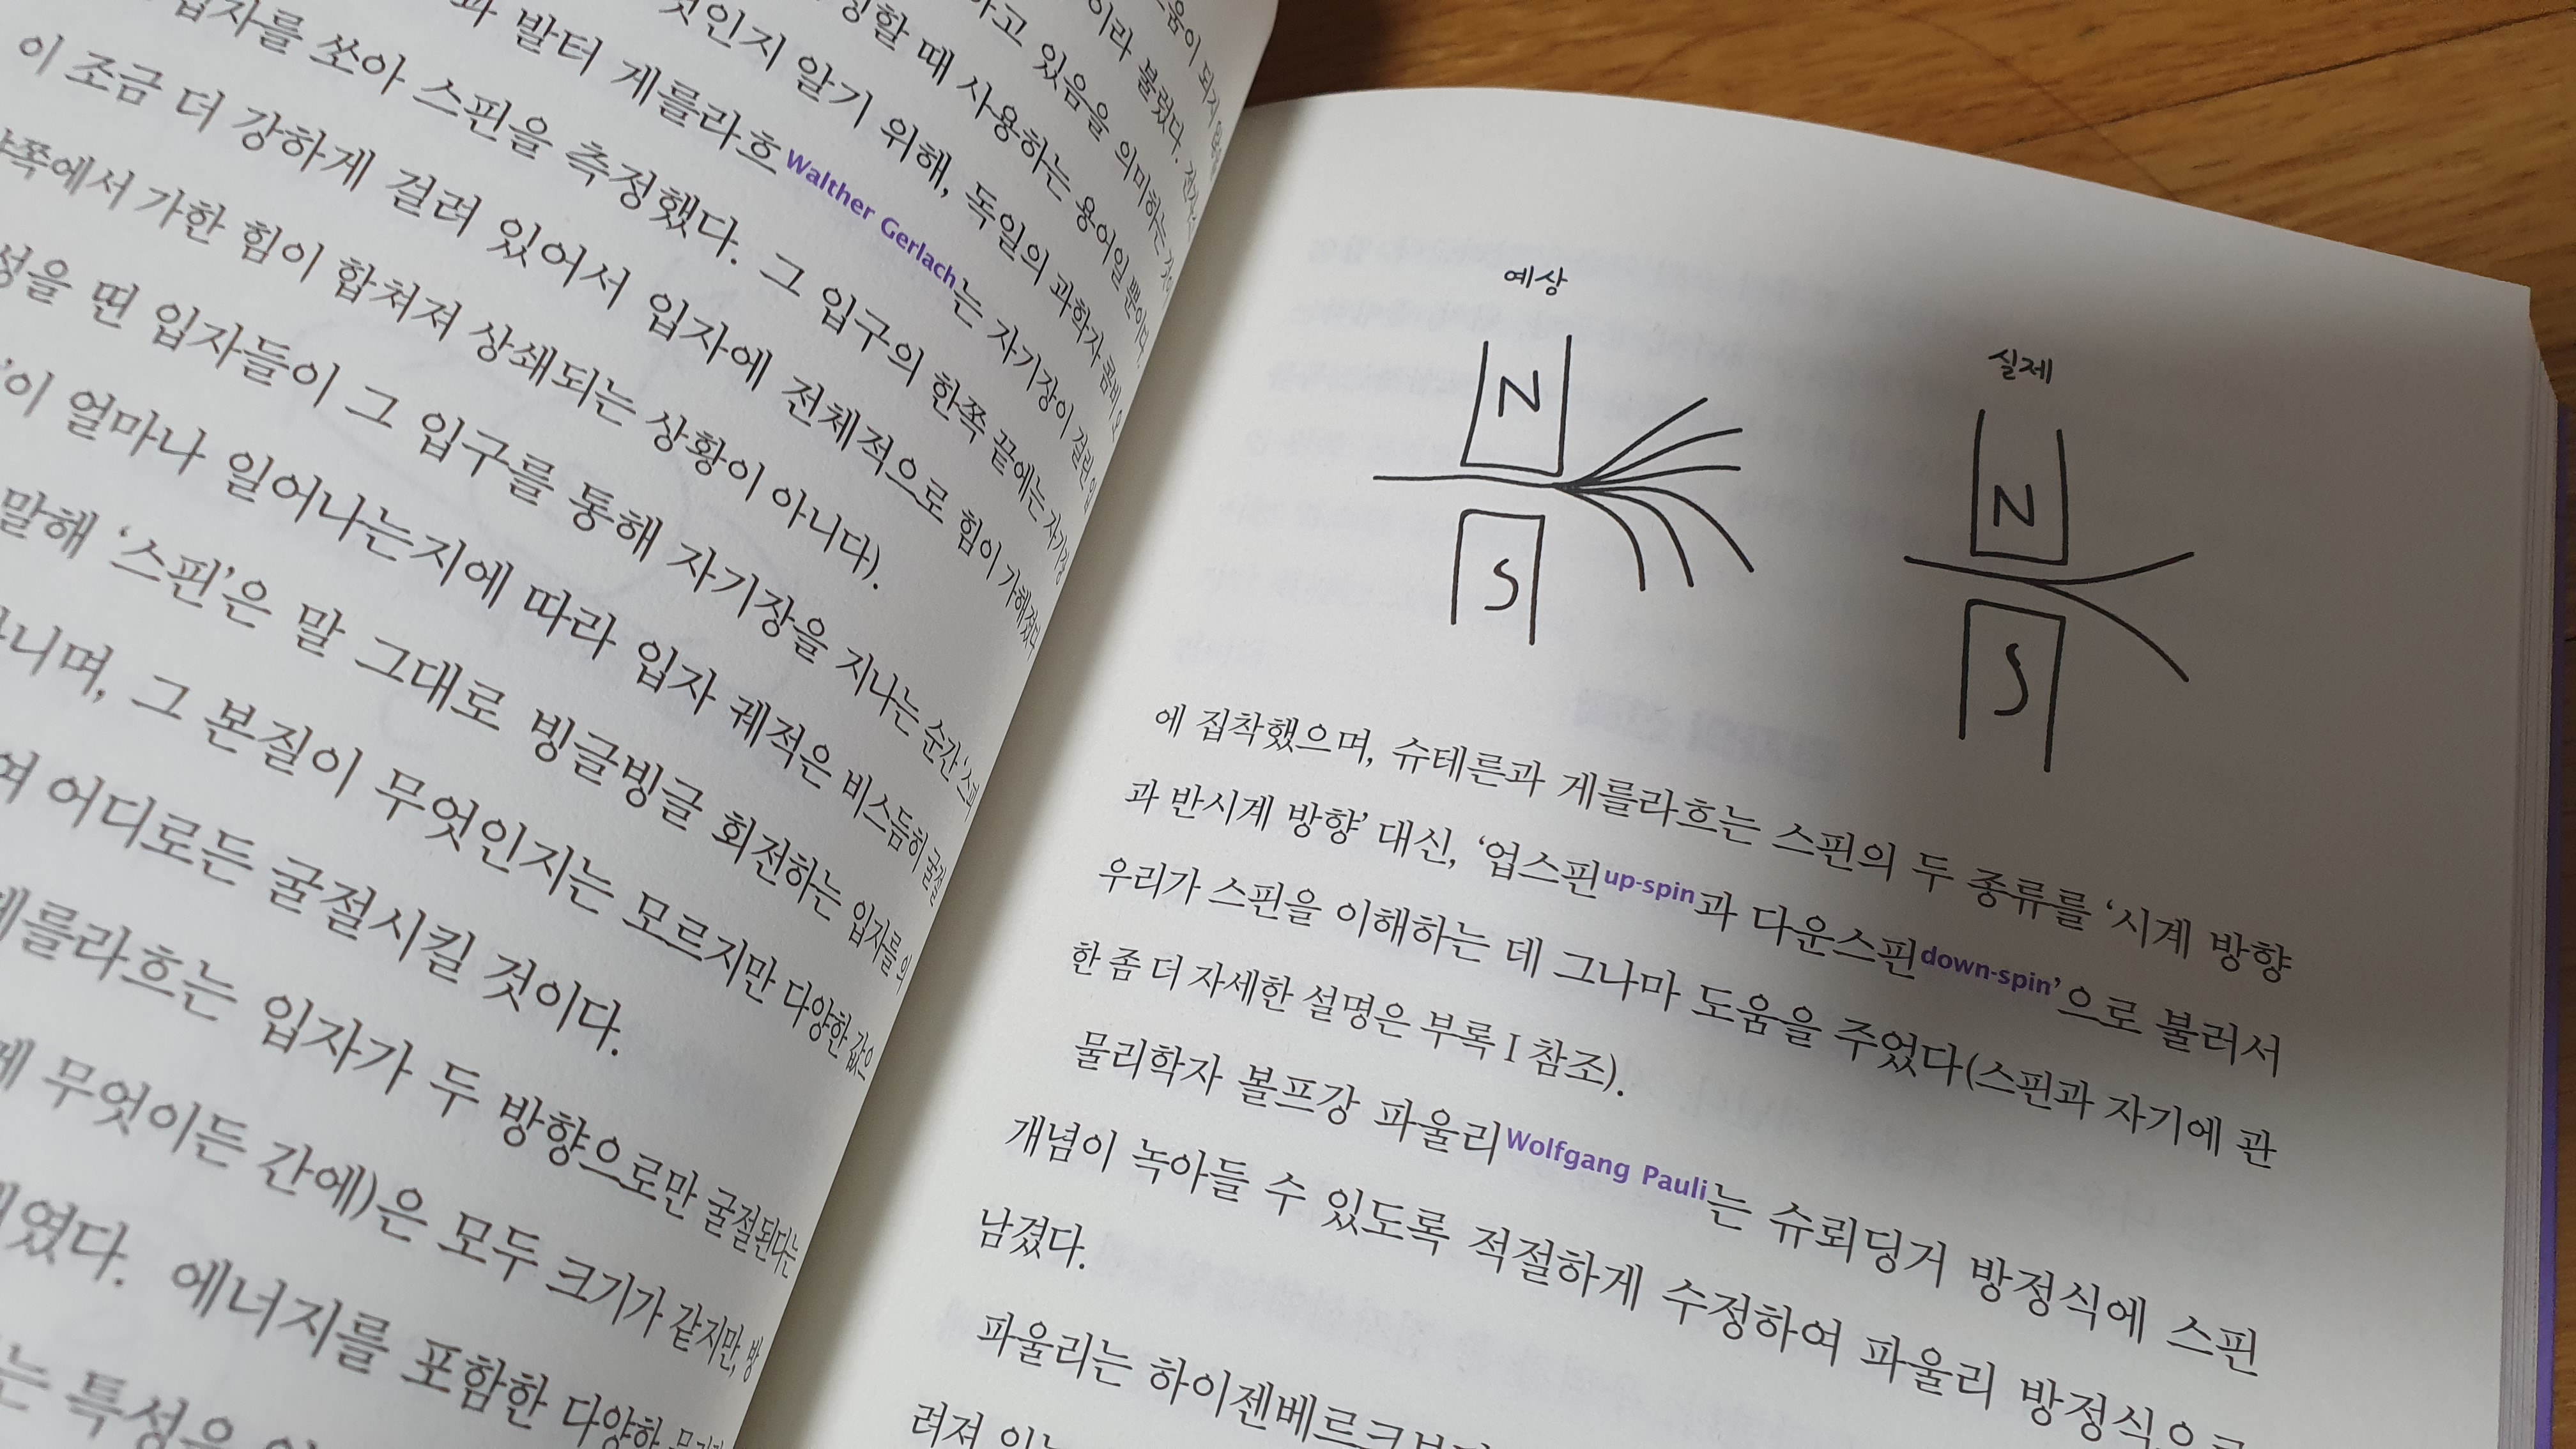 입자를 쏘아 스핀을 측정했다. 그 입구의 한쪽 끝에는 자기장
이 조금 더 강하게 걸려 있어서 입자에 전체적으로 힘이 가해졌다
쪽에서 가한 힘이 합쳐져 상쇄되는 상황이 아니다).
성을 띤 입자들이 그 입구를 통해 자기장을 지나는 순간 '스핀
'이 얼마나 일어나는지에 따라 입자 궤적은 비스듬히 굴절
말해 '스핀'은 말 그대로 빙글빙글 회전하는 입자를 의
니며, 그 본질이 무엇인지는 모르지만 다양한 값으
여 어디로든 굴절시킬 것이다.
게를라흐는 입자가 두 방향으로만 굴절된다는
무엇이든 간에)은 모두 크기가 같지만, 방
였다. 에너지를 포함한 다양한
는 특성을
과 발터 게를라흐Walther Gerlach는 자기장이 걸린
것인지 알기 위해, 독일의 과학자 콤비
할 때 사용하는 용어일 뿐이다.
하고 있음을 의미하는 것이
이라 불렀다.
움이 되지
예상
N
S
실제
N
S
에 집착했으며, 슈테른과 게를라흐는 스핀의 두 종류를 '시계 방향
과 반시계 방향' 대신, '업스핀up-spin과 다운스핀down-spin'으로 불러서
우리가 스핀을 이해하는 데 그나마 도움을 주었다(스핀과 자기에 관
한 좀 더 자세한 설명은 부록 I 참조).
물리학자 볼프강 파울리Wolfgang Pauli는 슈뢰딩거 방정식에 스핀
개념이 녹아들 수 있도록 적절하게 수정하여 파울리 방정식으로
남겼다.
파울리는 하이젠베르크보다
려져 있는